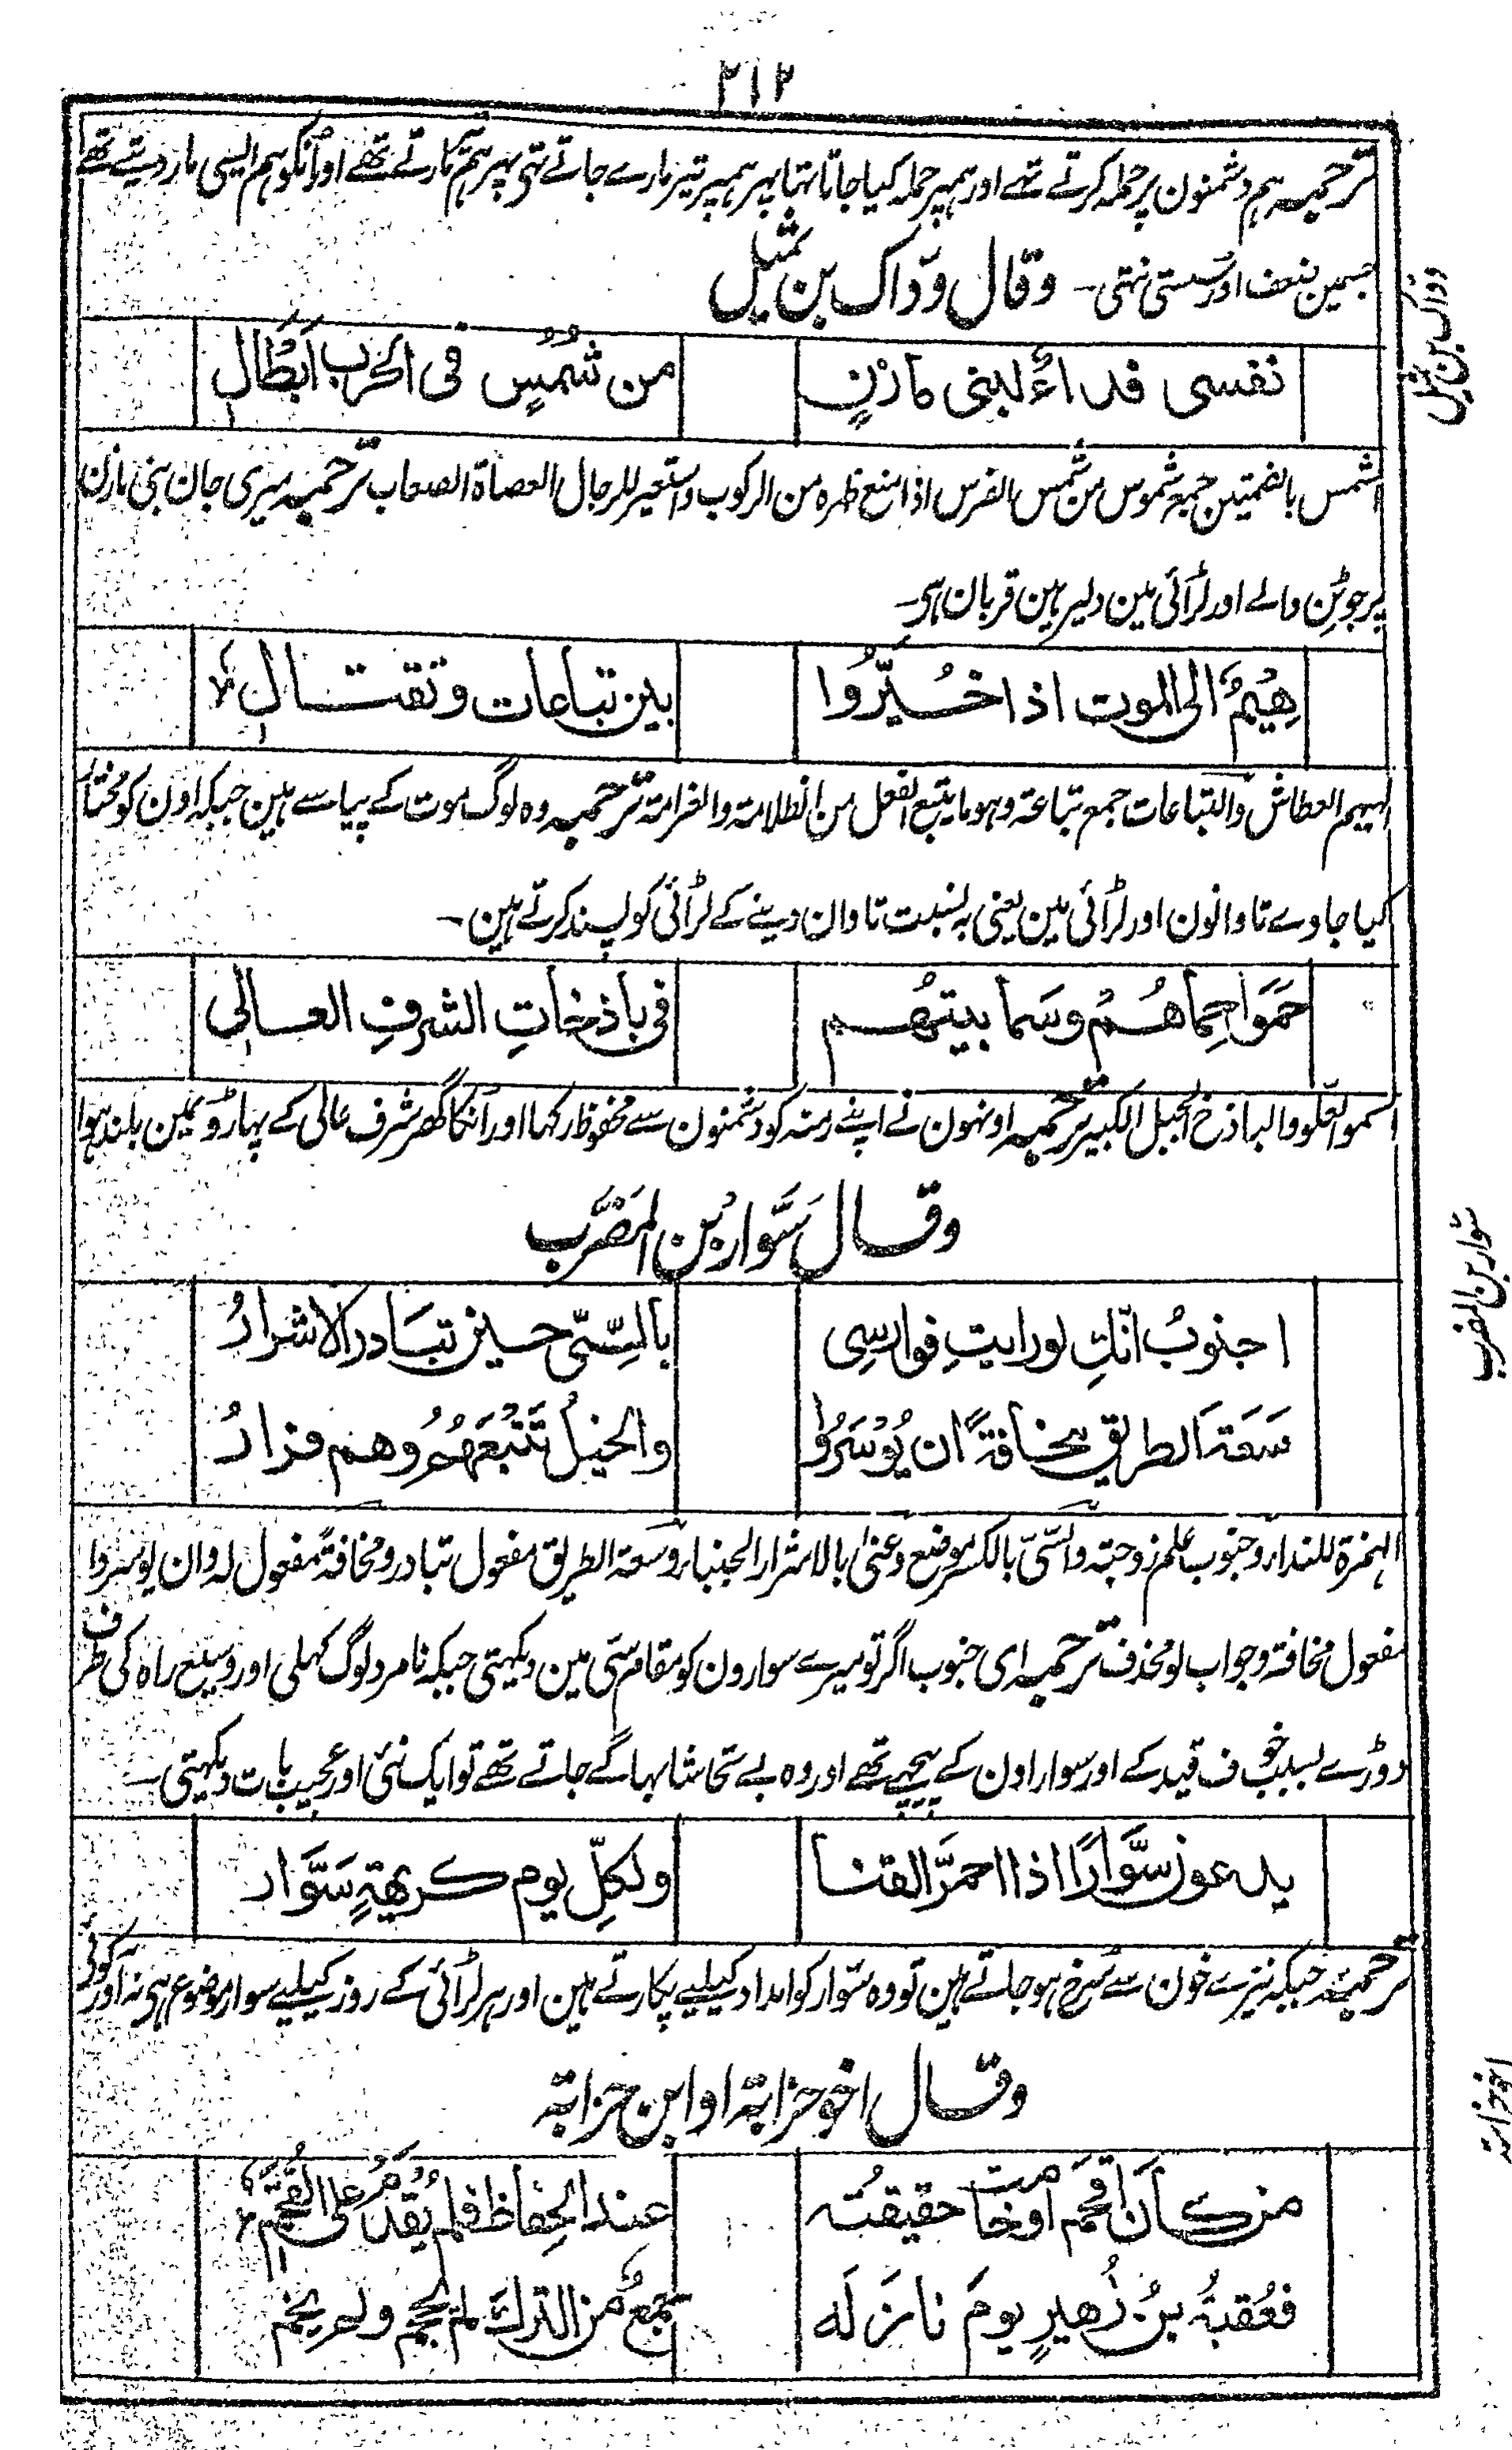 ۲۱۲
ترجمیہ ہم دشمنون پر حملہ کرتے تہے اور ہمپر حملہ کیا جاتا تہا پہر ہمپر تیر مارے جاتے تہی پہر ہم مارتے تھے اور اُنکو ہم ایسی مار دیتے تھے
جسمین ضعف اور سستی نہتی ۔ وقال ودّاک بن ثمیل
ودّاک بن ثمیل
نفسی فداءٌ لبنی مازنٍ من شُمُسٍ فی الحرب اَبْطَال
الشمس بالضمتین جمع شموس من شمس الفرس اذا منع ظہرہ من الرکوب واستعیر للرجال العصاة الصعاب ترجمیہ میری جان بنی مازن
پر جو والے اور لڑائی مین دلیر ہین قربان ہی۔
ھِیْمٌ الی الموت اذا خُیّرُوا بین تباعات وتقتال
الہیم العطاش والتباعات جمع تباعۃ وہو ما یتبع الفعل من الظلامۃ والغرامۃ ترجمیہ وہ لوگ موت کے پیاسے ہین جبکہ اون کو مختار
کیا جاوے تاوانون اور لڑائی مین یعنی بہ نسبت تاوان دینے کے لڑائی کو پسند کرتے ہین ۔
حَمَوا حِماھُمْ وسَما بیتھُم فی باذخاتِ الشرفِ العالی
السمو العلو والباذخ الجبل الکبیر ترجمیہ اونہون نے اپنے رمنہ کو دشمنون سے محفوظ رکہا اور اُنکا گھر شرف عالی کے پہاڑونمین بلند ہوا
وقال سَوّار بن المضَرَّب
سوار بن المضرب
اجنوبُ انّکِ لو رایتِ فوارسی بالسِّیّ حین تبادر الاشرارُ
سَعَةَ الطریقِ مخافةً ان یُوْسَرُوا والخیلُ تَتْبَعُھُمُ وھم فرارُ
الہمزة للنداء وجنوب علم زوجتہ والسّیّ بالکسر موضع وعنی بالاشرار الجبناء وسعۃ الطریق مفعول تبادر ومخافةً مفعول لہ وان یوسروا
مفعول مخافۃ وجواب لو محذوف ترجمیہ ای جنوب اگر تو میرے سوارون کو مقام سّی مین دیکہتی جبکہ نامرد لوگ کہلی اور وسیع راہ کی طرف
دوڑے بسبب خوف قید کے اور سوار اون کے پیچھے تھے اور وہ بے تحاشا بہاگے جاتے تھے تو ایک نئی اور عجیب بات دیکہتی ۔
یدعون سَوَّارًا اذا احمرَّ القنا ولکلِّ یوم کریھةٍ سَوَّار
ترجمیہ جبکہ نیزے خون سے سُرخ ہو جاتے ہین تو وہ سوّار کو امداد کیلیے پکارتے ہین اور ہر لڑائی کے روز کیلیے سوار موضوع ہی نہ اور کوئی
وقال اخو حزابۃ او ابن حزابۃ
من کان اقحم او خامت حقیقتُہ عند الحِفاظ فلم یُقدِم علی القُحَم
فعُقبةُ بنُ زُھیرٍ یومَ نازَلَہ جمعٌ من الترك لم یحجم ولم یخم